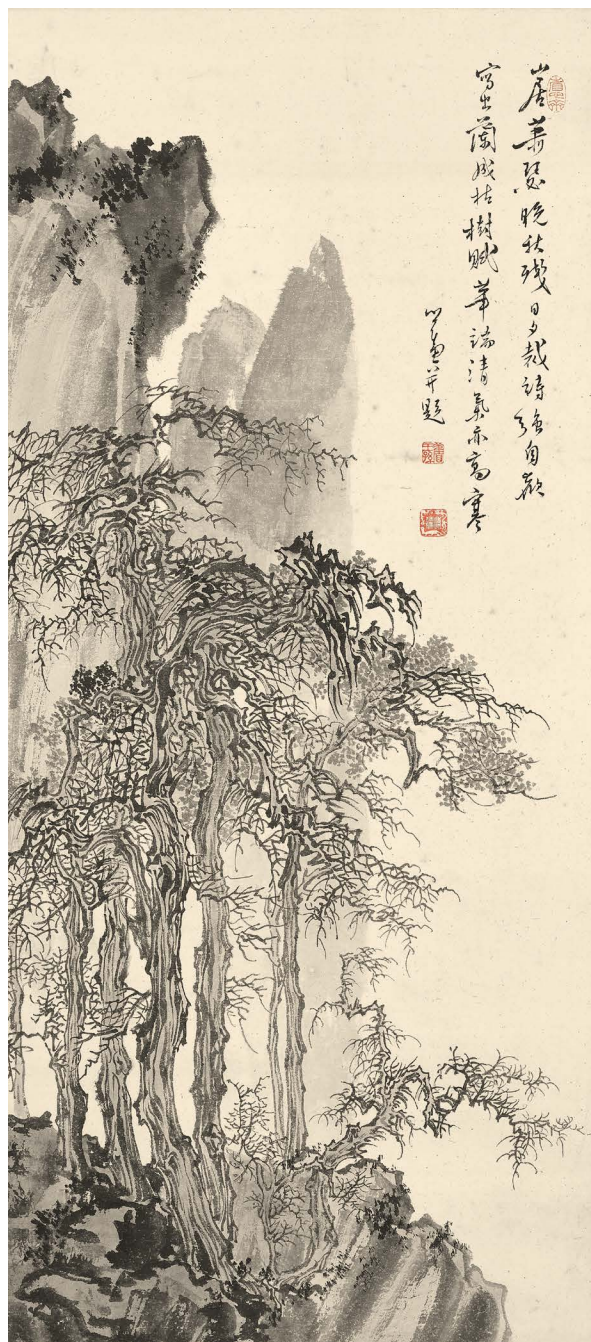 山居蕭瑟晚秋殘日夕裁詩強自歡
寫出蘭成枯樹賦筆端清氣亦高寒
心畬并題
舊王孫